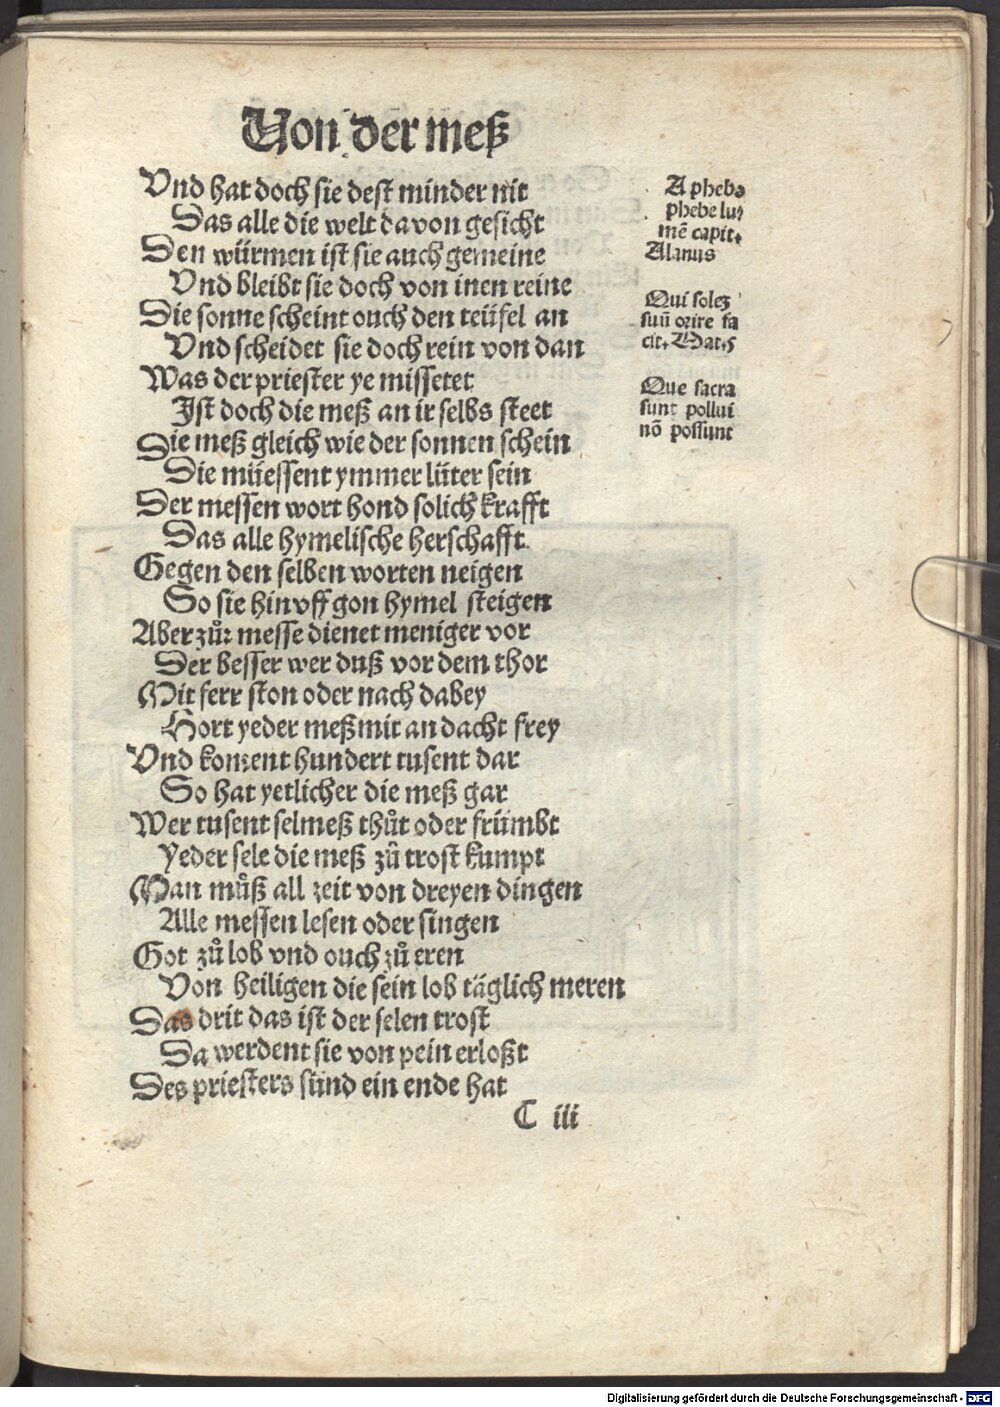 Von der meß
Vnd hat doch sie dest minder nit
Das alle die welt da von gesicht
Den würmen ist sie auch gemeine
Vnd bleibt sie doch von inen reine
Die sonne scheint ouch den teüfel an
Vnd scheidet sie doch rein von dan
Was der priester ye missetet
Ist doch die meß an ir selbs steet
Die meß gleich wie der sonnen schein
Die müessent ymmer lüter sein
Der messen wort hond solich krafft
Das alle hymelische herschafft
Gegen den selben worten neigen
So sie hin vff gon hymel steigen
Aber zů: messe dienet meniger vor
Der besser wer duß vor dem thor
Mit ferr ston oder nach dabey
Hort yeder meß mit an dacht frey
Vnd koment hundert tusent dar
So hat yetlicher die meß gar
Wer tusent selmeß thůt oder frümbt
Yeder sele die meß zů trost kumpt
Man můß all zeit von dreyen dingen
Alle messen lesen oder singen
Got zů lob vnd ouch zů eren
Von heiligen die sein lob täglich meren
Das drit das ist der selen trost
Da werdent sie von pein erloßt
Des priesters sünd ein ende hat
C iii
A phebo
phebe lu
mē capit.
Alanus
Qui solez
suū orire fa
cit. Mat. 5
Que sacra
sunt pollui
nō possunt
Digitalisierung gefördert durch die Deutsche Forschungsgemeinschaft - DFG